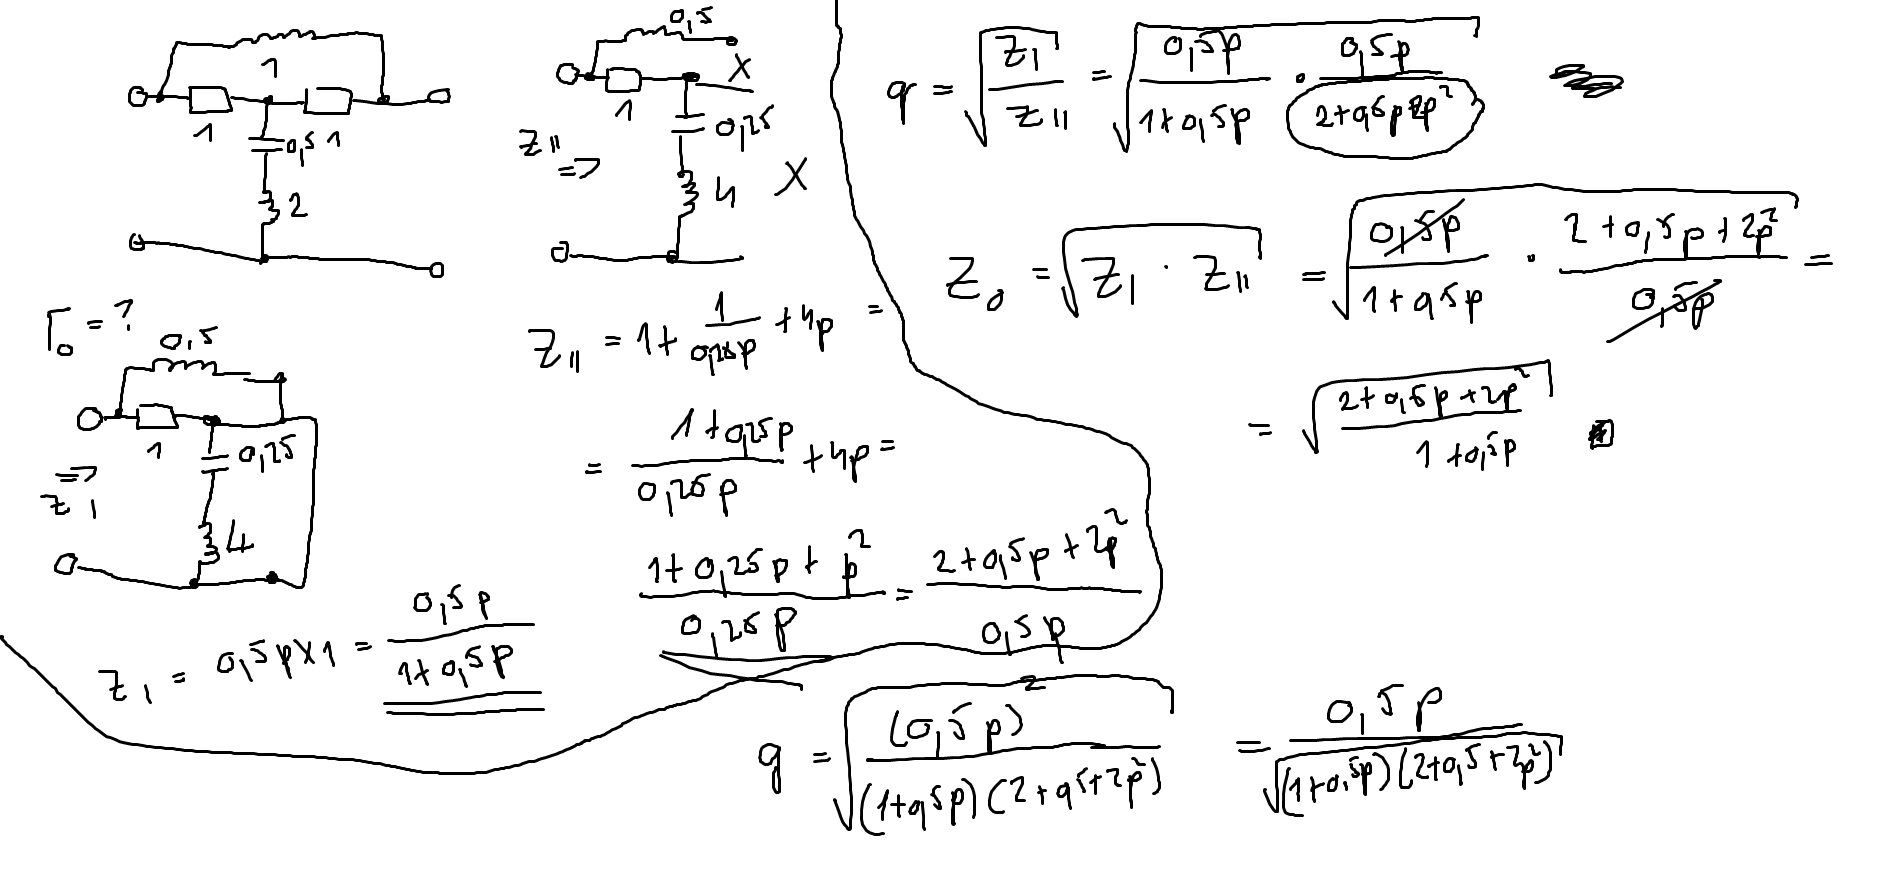 1
1
0,5 1
2
Γ₀ = ?
0,5
1
0,25
=>
Z₁
4
Z₁ = 0,5p×1 = 0,5p / 1+0,5p
0,5
X
1
0,25
Z₁₁
=>
4
X
Z₁₁ = 1+ 1/0,25p +4p =
= 1+0,25p / 0,25p +4p =
1+0,25p+p² / 0,25p = 2+0,5p+2p² / 0,5p
q = √(Z₁ / Z₁₁) = √(0,5p / 1+0,5p · 0,5p / 2+0,5p 2p²)
Z₀ = √(Z₁ · Z₁₁) = √(0,5p / 1+0,5p · 2+0,5p+2p² / 0,5p) =
= √(2+0,5p+2p² / 1+0,5p)
g = √((0,5p)² / (1+0,5p)(2+0,5+2p²)) = 0,5p / √((1+0,5p)(2+0,5+2p²))